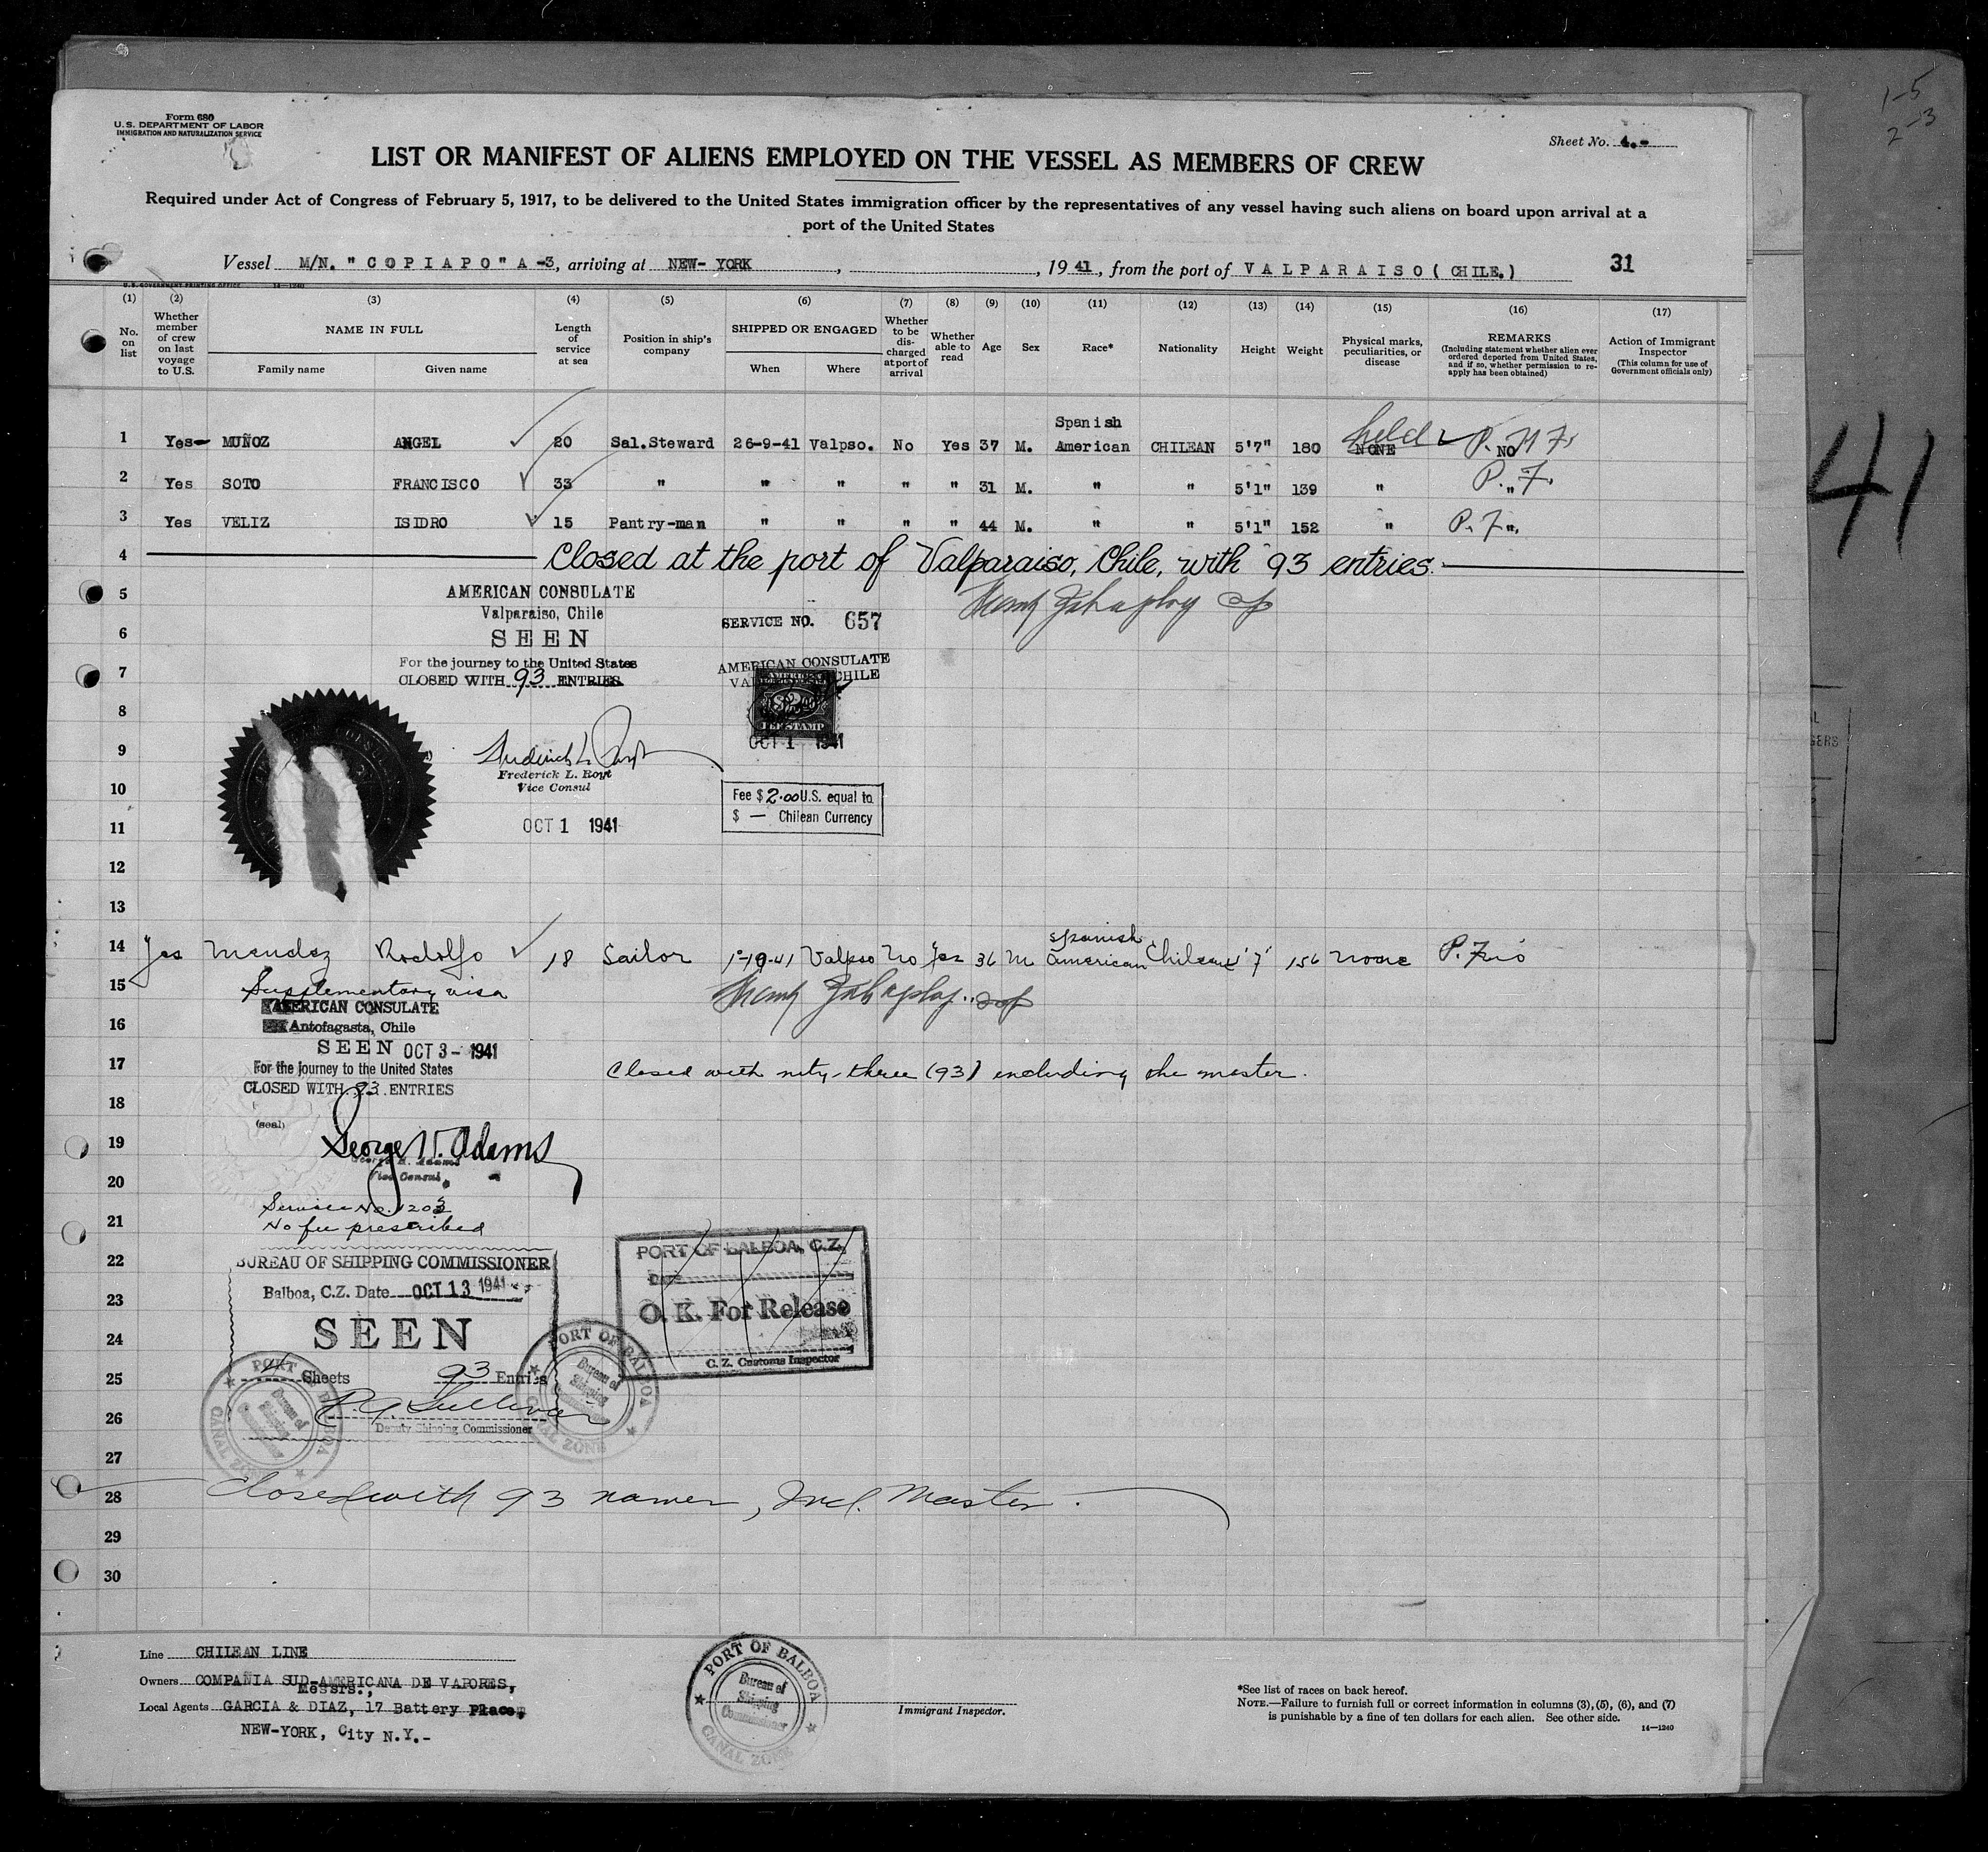 Form 680
U.S. DEPARTMENT OF LABOR
IMMIGRATION AND NATURALIZATION SERVICE
1-5
2-3
Sheet No. 4.-
LIST OR MANIFEST OF ALIENS EMPLOYED ON THE VESSEL AS MEMBERS OF CREW
Required under Act of Congress of February 5, 1917, to be delivered to the United States immigration officer by the representatives of any vessel having such aliens on board upon arrival at a
port of the United States
Vessel M/N. "COPIAPO" A-3, arriving at NEW-YORK, , 1941, from the port of VALPARAISO (CHILE.) 31
U.S. GOVERNMENT PRINTING OFFICE 14-1240
(1) (2) (3) (4) (5) (6) (7) (8) (9) (10) (11) (12) (13) (14) (15) (16) (17)
No. on list
Whether member of crew on last voyage to U.S.
NAME IN FULL
Family name Given name
Length of service at sea
Position in ship's company
SHIPPED OR ENGAGED
When Where
Whether to be discharged at port of arrival
Whether able to read
Age
Sex
Race*
Nationality
Height
Weight
Physical marks, peculiarities, or disease
REMARKS
(Including statement whether alien ever ordered deported from United States, and if so, whether permission to re-apply has been obtained)
Action of Immigrant Inspector
(This column for use of Government officials only)
1 Yes- MUÑOZ ANGEL 20 Sal.Steward 26-9-41 Valpso. No Yes 37 M. Spanish American CHILEAN 5'7" 180 NONE held NO
2 Yes SOTO FRANCISCO 33 " " " " " 31 M. " " 5'1" 139 " " P. F.
3 Yes VELIZ ISIDRO 15 Pantry-man " " " " 44 M. " " 5'1" 152 " " P. F.
41
4 Closed at the port of Valparaiso, Chile, with 93 entries.
5 AMERICAN CONSULATE
Valparaiso, Chile
6 SEEN
SERVICE NO. 657
For the journey to the United States
7 CLOSED WITH 93 ENTRIES
AMERICAN CONSULATE
CHILE
8
FEE STAMP
9 OCT 1 1941
Frederick L. Royt
Vice Consul
10 Fee $ 2.00 U.S. equal to
$ — Chilean Currency
11 OCT 1 1941
12
13
14 Yes Mendez Rodolfo 18 Sailor 1-10-41 Valpso No Yes 36 M Spanish American Chilean 5'7" 156 none
15 Supplementary visa
AMERICAN CONSULATE
16 Antofagasta, Chile
SEEN OCT 3- 1941
17 For the journey to the United States
Closed with nity-three (93) including the master.
CLOSED WITH 93 ENTRIES
18
(seal)
19 George W. Adams
Vice Consul
20
Service No. 1203
21 No fee prescribed
22 BUREAU OF SHIPPING COMMISSIONER
Balboa, C.Z. Date OCT 13 1941
23 SEEN
24
25 4 Sheets 93 Entries
P.G. Sullivan
26 Deputy Shipping Commissioner
PORT OF BALBOA, C.Z.
Date
O. K. For Release
C. Z. Customs Inspector
PORT OF BALBOA
Bureau of Shipping Commissioner
CANAL ZONE
PORT OF BALBOA
Bureau of Shipping Commissioner
CANAL ZONE
27
28 Closed with 93 names, Incl. Master.
29
30
Line CHILEAN LINE
Owners COMPAÑIA SUD-AMERICANA DE VAPORES,
Messrs.,
Local Agents GARCIA & DIAZ, 17 Battery Place,
NEW-YORK, City N.Y.-
PORT OF BALBOA
Bureau of Shipping Commissioner
CANAL ZONE
Immigrant Inspector.
*See list of races on back hereof.
NOTE.—Failure to furnish full or correct information in columns (3), (5), (6), and (7)
is punishable by a fine of ten dollars for each alien. See other side.
14—1240